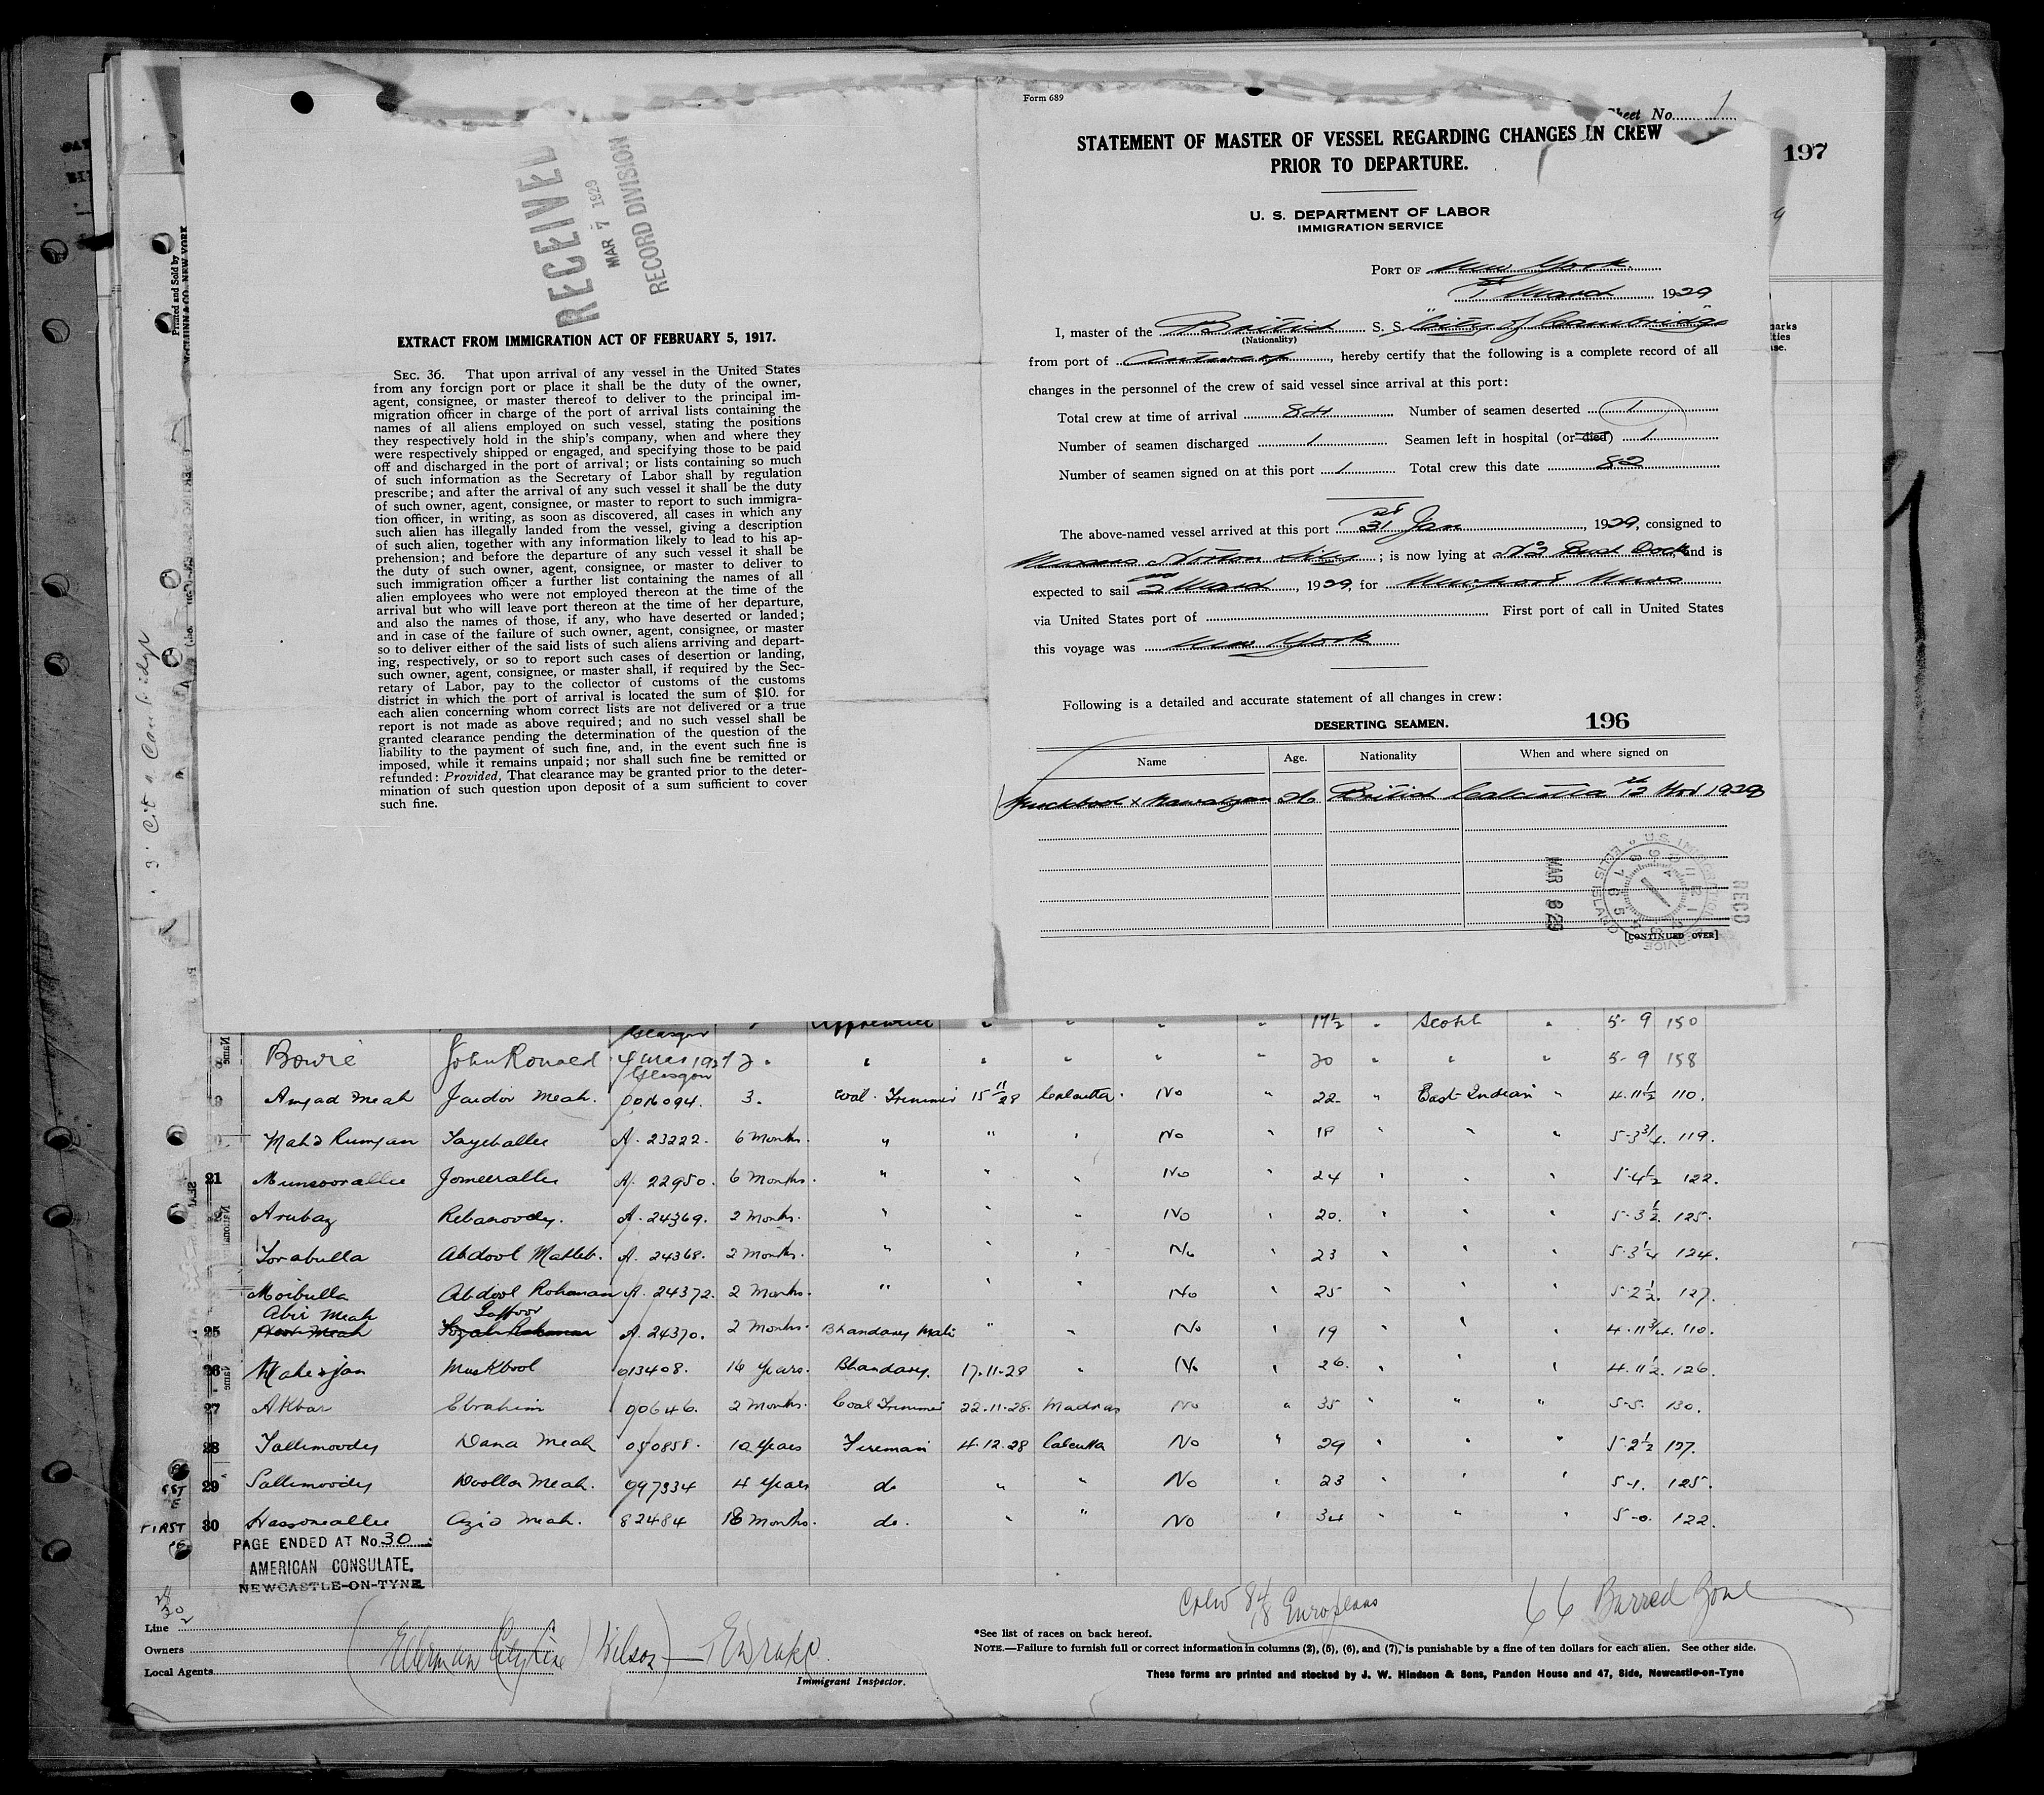 RECEIVED
MAR 7 1929
RECORD DIVISION
EXTRACT FROM IMMIGRATION ACT OF FEBRUARY 5, 1917.
SEC. 36. That upon arrival of any vessel in the United States
from any foreign port or place it shall be the duty of the owner,
agent, consignee, or master thereof to deliver to the principal im-
migration officer in charge of the port of arrival lists containing the
names of all aliens employed on such vessel, stating the positions
they respectively hold in the ship's company, when and where they
were respectively shipped or engaged, and specifying those to be paid
off and discharged in the port of arrival; or lists containing so much
of such information as the Secretary of Labor shall by regulation
prescribe; and after the arrival of any such vessel it shall be the duty
of such owner, agent, consignee, or master to report to such immigra-
tion officer, in writing, as soon as discovered, all cases in which any
such alien has illegally landed from the vessel, giving a description
of such alien, together with any information likely to lead to his ap-
prehension; and before the departure of any such vessel it shall be
the duty of such owner, agent, consignee, or master to deliver to
such immigration officer a further list containing the names of all
alien employees who were not employed thereon at the time of the
arrival but who will leave port thereon at the time of her departure,
and also the names of those, if any, who have deserted or landed;
and in case of the failure of such owner, agent, consignee, or master
so to deliver either of the said lists of such aliens arriving and depart-
ing, respectively, or so to report such cases of desertion or landing,
such owner, agent, consignee, or master shall, if required by the Sec-
retary of Labor, pay to the collector of customs of the customs
district in which the port of arrival is located the sum of $10. for
each alien concerning whom correct lists are not delivered or a true
report is not made as above required; and no such vessel shall be
granted clearance pending the determination of the question of the
liability to the payment of such fine, and, in the event such fine is
imposed, while it remains unpaid; nor shall such fine be remitted or
refunded: Provided, That clearance may be granted prior to the deter-
mination of such question upon deposit of a sum sufficient to cover
such fine.
Form 689
Sheet No. 1
STATEMENT OF MASTER OF VESSEL REGARDING CHANGES IN CREW
PRIOR TO DEPARTURE.
197
U. S. DEPARTMENT OF LABOR
IMMIGRATION SERVICE
PORT OF New York.
1st March 1929
I, master of the British S. S. "City of Cambridge"
(Nationality)
from port of Antwerp, hereby certify that the following is a complete record of all
changes in the personnel of the crew of said vessel since arrival at this port:
Total crew at time of arrival 84 Number of seamen deserted 1
Number of seamen discharged 1 Seamen left in hospital (or died) 1
Number of seamen signed on at this port 1 Total crew this date 82
The above-named vessel arrived at this port 31st Jan, 1929, consigned to
Messrs Norton Lilly; is now lying at and is
expected to sail 2nd March, 1929, for Newport News
via United States port of First port of call in United States
this voyage was New York
Following is a detailed and accurate statement of all changes in crew:
DESERTING SEAMEN. 196
Name Age. Nationality When and where signed on
26 British Calcutta 12 Nov 1928
MAR 8 29
RECD
[CONTINUED OVER]
17½ " Scotch " 5-9 150
Glasgow
Bowie John Ronald 4 Mar 1927 2 " 20 " " " 5-9 158
Glasgow
Amjad Meah Jaidor Meah. 0016094. 3. Coal Trimmer 15 11/28 Calcutta. No " 22 " East-Indian " 4.11½ 110.
Mahd Rumjan Tayeballee A. 23222. 6 Months. " " " No " 18 " " " 5-3¾. 119.
21 Munsoorallee Jomeerallee A. 22950. 6 Months. " " " No " 24 " " " 5.4½ 122.
Arubaz A. 24369. 2 Months. " " " No " 20. " " " 5-3½. 125.
Torabulla Abdool Matleb. A. 24368. 2 Months. " " " No " 23 " " " 5-3¼ 124.
Moibulla Abdool Rohaman A. 24372. 2 Months. " " " No " 25 " " " 5-2½. 127.
Abir Meah Goffoor
25 A. 24370. 2 Months. Bhandary Mate " " No " 19 " " " 4.11¾. 110.
26 Muckbool 013408. 16 Years. Bhandary. 17-11-28 " No " 26. " " " 4.11½. 126.
27 Akbar Ebrahim 00646. 2 Months. Coal Trimmer 22.11.28. Madras No " 35 " " " 5-5. 130.
28 Tallimoody Dana Meah 050858. 10 Years Fireman 4.12.28 Calcutta No " 29 " " " 5-2½ 127.
29 Sallimoody Doolla Meah. 097334 4 Years do " " No " 23 " " " 5-1. 125.
30 Hassoneallee Azid Meah. 82484 18 Months. do. " " No " 34 " " " 5-0. 122.
PAGE ENDED AT No. 30
AMERICAN CONSULATE.
NEWCASTLE-ON-TYNE
Crew 84
18 Europeans
66 Barred Zone
Line
Owners
Local Agents
(Ellerman City Line) Wilson) — E Drake.
Immigrant Inspector.
*See list of races on back hereof.
NOTE.—Failure to furnish full or correct information in columns (2), (5), (6), and (7), is punishable by a fine of ten dollars for each alien. See other side.
These forms are printed and stocked by J. W. Hindson & Sons, Pandon House and 47, Side, Newcastle-on-Tyne